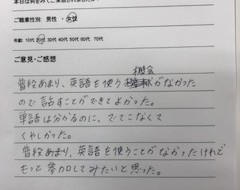 ご職業性別: 男性 ・ 女性
年齢: 10代 20代 30代 40代 50代 60代 70代
ご意見・ご感想
機会
普段あまり、英語を使う がなかった
ので 話すことができてよかった。
単語は分かるのに、でてこなくて
くやしかった。
普段あまり、英語を使うことがなかったけれど
もっと努力してみたいと思った。